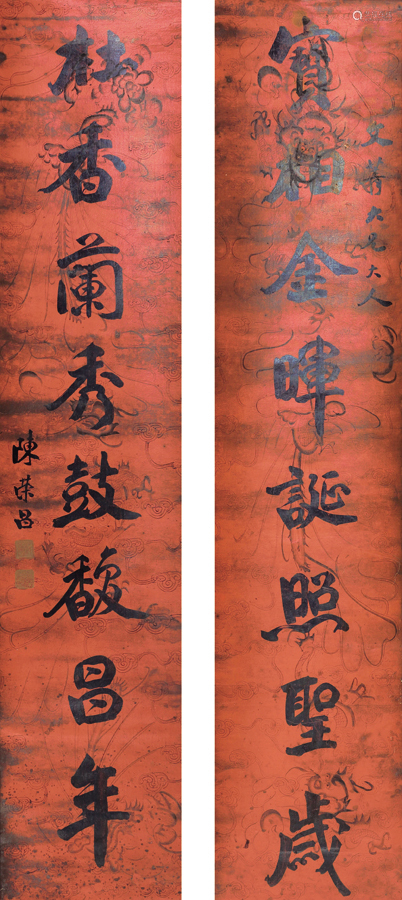 寶相金暉誕照聖歲
大兄大人
桂香蘭秀鼓馥昌年
陳榮昌